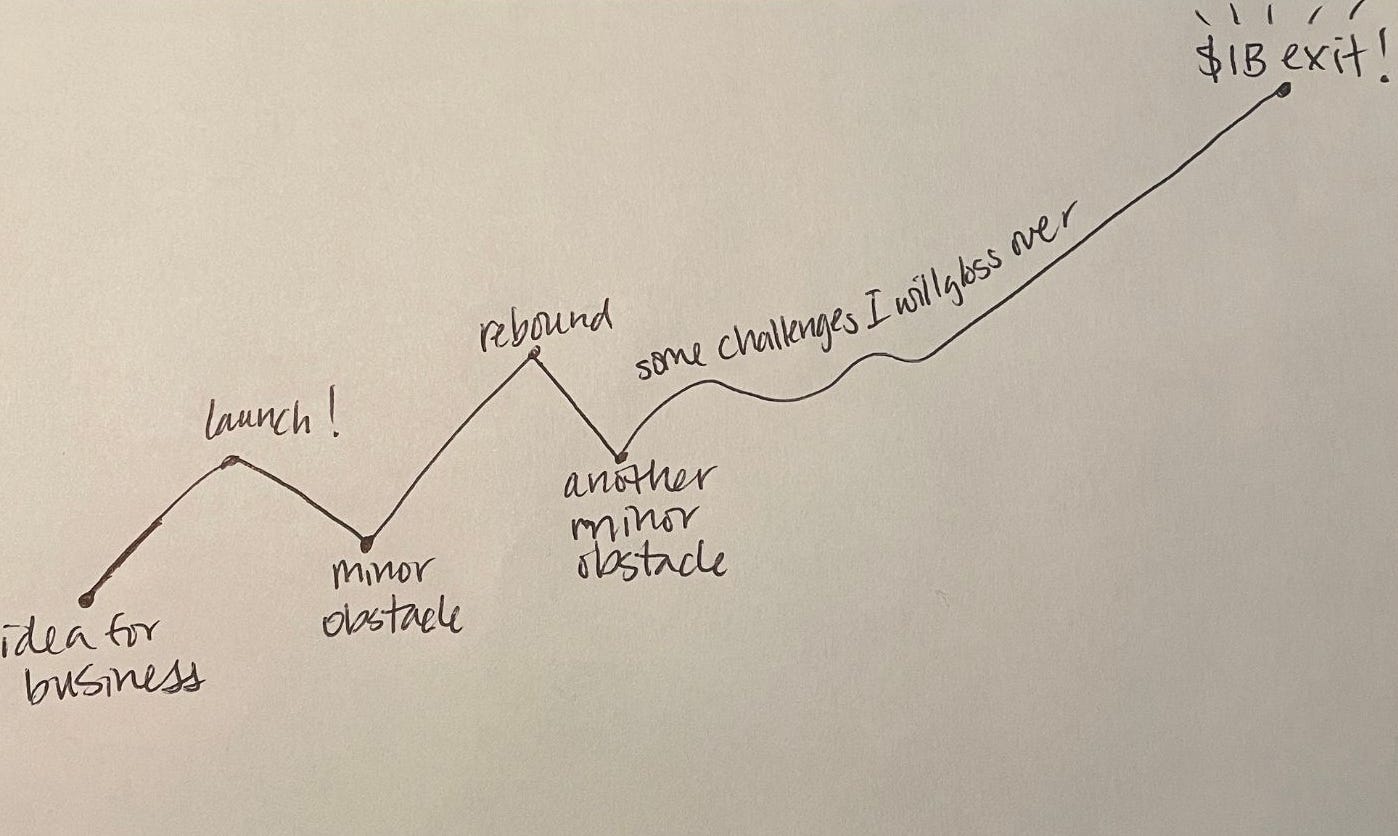 $1B exit!
some challenges I will gloss over
rebound
launch!
another
minor
obstacle
minor
obstacle
idea for
business